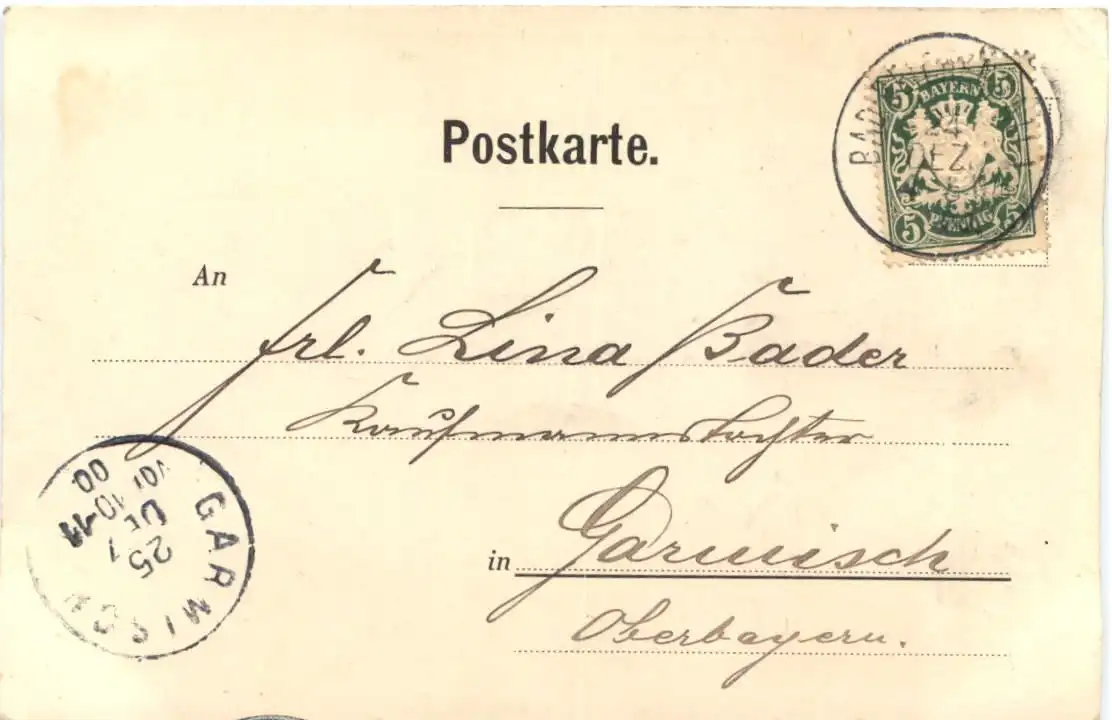 Postkarte.
5 BAYERN 5
24
DEZ.
5 PFENNIG 5
An
Frl. Lina Bader
Kaufmannstochter
in Garmisch
Oberbayern.
GARMISCH
25
DE
10-11
00